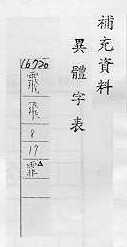 補充資料
異體字表
16720
8
17
霏△